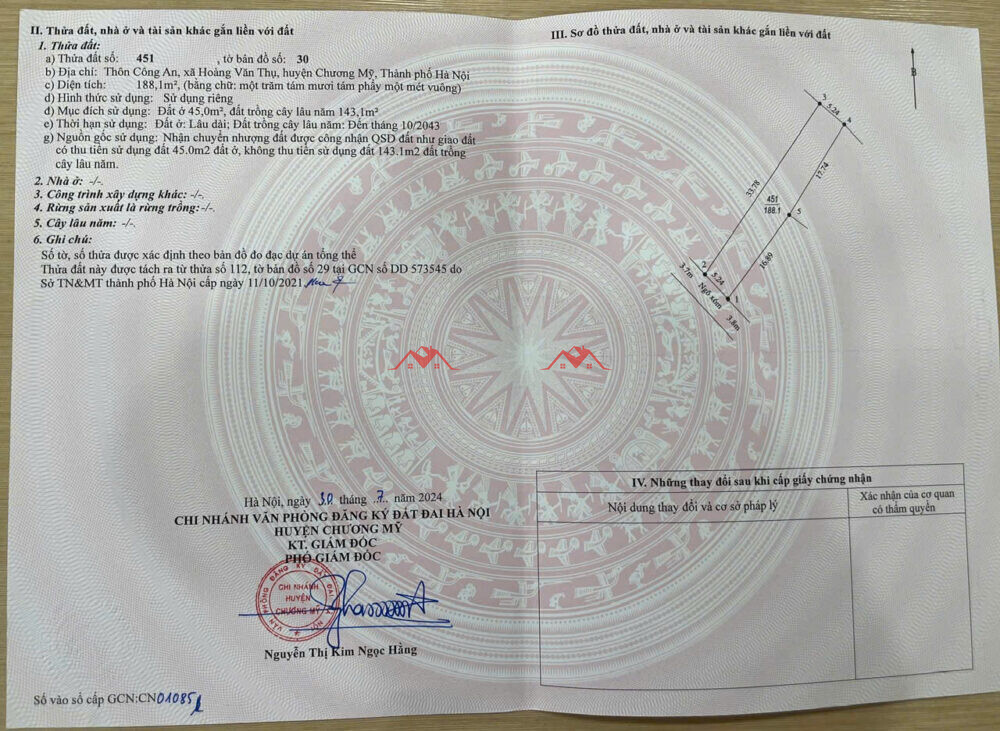 II. Thửa đất, nhà ở và tài sản khác gắn liền với đất
1. Thửa đất:
a) Thửa đất số: 451 , tờ bản đồ số: 30
b) Địa chỉ: Thôn Công An, xã Hoàng Văn Thụ, huyện Chương Mỹ, Thành phố Hà Nội
c) Diện tích: 188,1m², (bằng chữ: một trăm tám mươi tám phẩy một mét vuông)
d) Hình thức sử dụng: Sử dụng riêng
đ) Mục đích sử dụng: Đất ở 45,0m², đất trồng cây lâu năm 143,1m²
e) Thời hạn sử dụng: Đất ở: Lâu dài; Đất trồng cây lâu năm: Đến tháng 10/2043
g) Nguồn gốc sử dụng: Nhận chuyển nhượng đất được công nhận QSD đất như giao đất
có thu tiền sử dụng đất 45.0m2 đất ở, không thu tiền sử dụng đất 143.1m2 đất trồng
cây lâu năm.
2. Nhà ở: -/-.
3. Công trình xây dựng khác: -/-.
4. Rừng sản xuất là rừng trồng: -/-.
5. Cây lâu năm: -/-.
6. Ghi chú:
Số tờ, số thửa được xác định theo bản đồ đo đạc dự án tổng thể
Thửa đất này được tách ra từ thửa số 112, tờ bản đồ số 29 tại GCN số DD 573545 do
Sở TN&MT thành phố Hà Nội cấp ngày 11/10/2021.
Hà Nội, ngày 30 tháng 7 năm 2024
CHI NHÁNH VĂN PHÒNG ĐĂNG KÝ ĐẤT ĐAI HÀ NỘI
HUYỆN CHƯƠNG MỸ
KT. GIÁM ĐỐC
PHÓ GIÁM ĐỐC
VĂN PHÒNG ĐĂNG KÝ ĐẤT ĐAI HÀ NỘI
CHI NHÁNH
HUYỆN
CHƯƠNG MỸ
Nguyễn Thị Kim Ngọc Hằng
Số vào sổ cấp GCN:CN01085
III. Sơ đồ thửa đất, nhà ở và tài sản khác gắn liền với đất
B
3
5.24
4
33.78
17.74
451
188.1
5
16.89
2
5.24
1
3.7m
Ngõ xóm
3.8m
IV. Những thay đổi sau khi cấp giấy chứng nhận
Nội dung thay đổi và cơ sở pháp lý
Xác nhận của cơ quan
có thẩm quyền